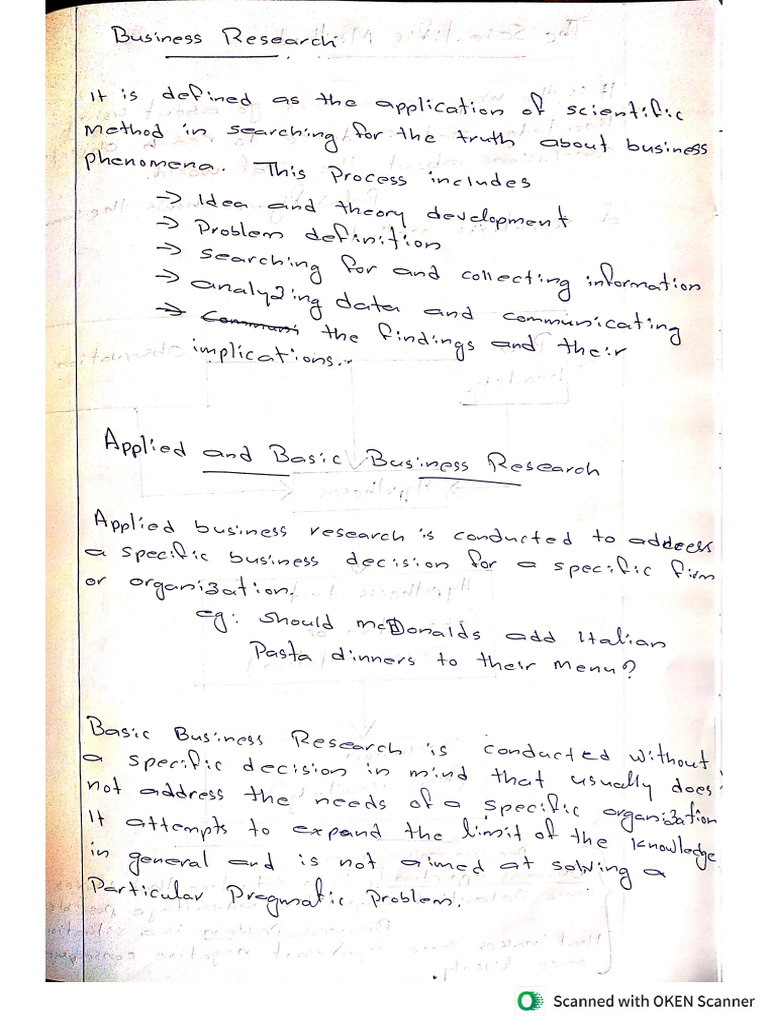 Business Research
It is defined as the application of scientific
Method in searching for the truth about business
phenomena. This Process includes
→ Idea and theory development
→ Problem definition
→ searching for and collecting information
→ analyzing data and communicating
→ Communi the findings and their
implications.
Applied and Basic Business Research
Applied business research is conducted to address
a specific business decision for a specific firm
or organization.
eg: should mcDonalds add Italian
Pasta dinners to their menu?
Basic Business Research is conducted without
a specific decision in mind that usually does
not address the needs of a specific organization
It attempts to expand the limit of the knowledge
in general and is not aimed at solving a
Particular Pragmatic Problem.
Scanned with OKEN Scanner